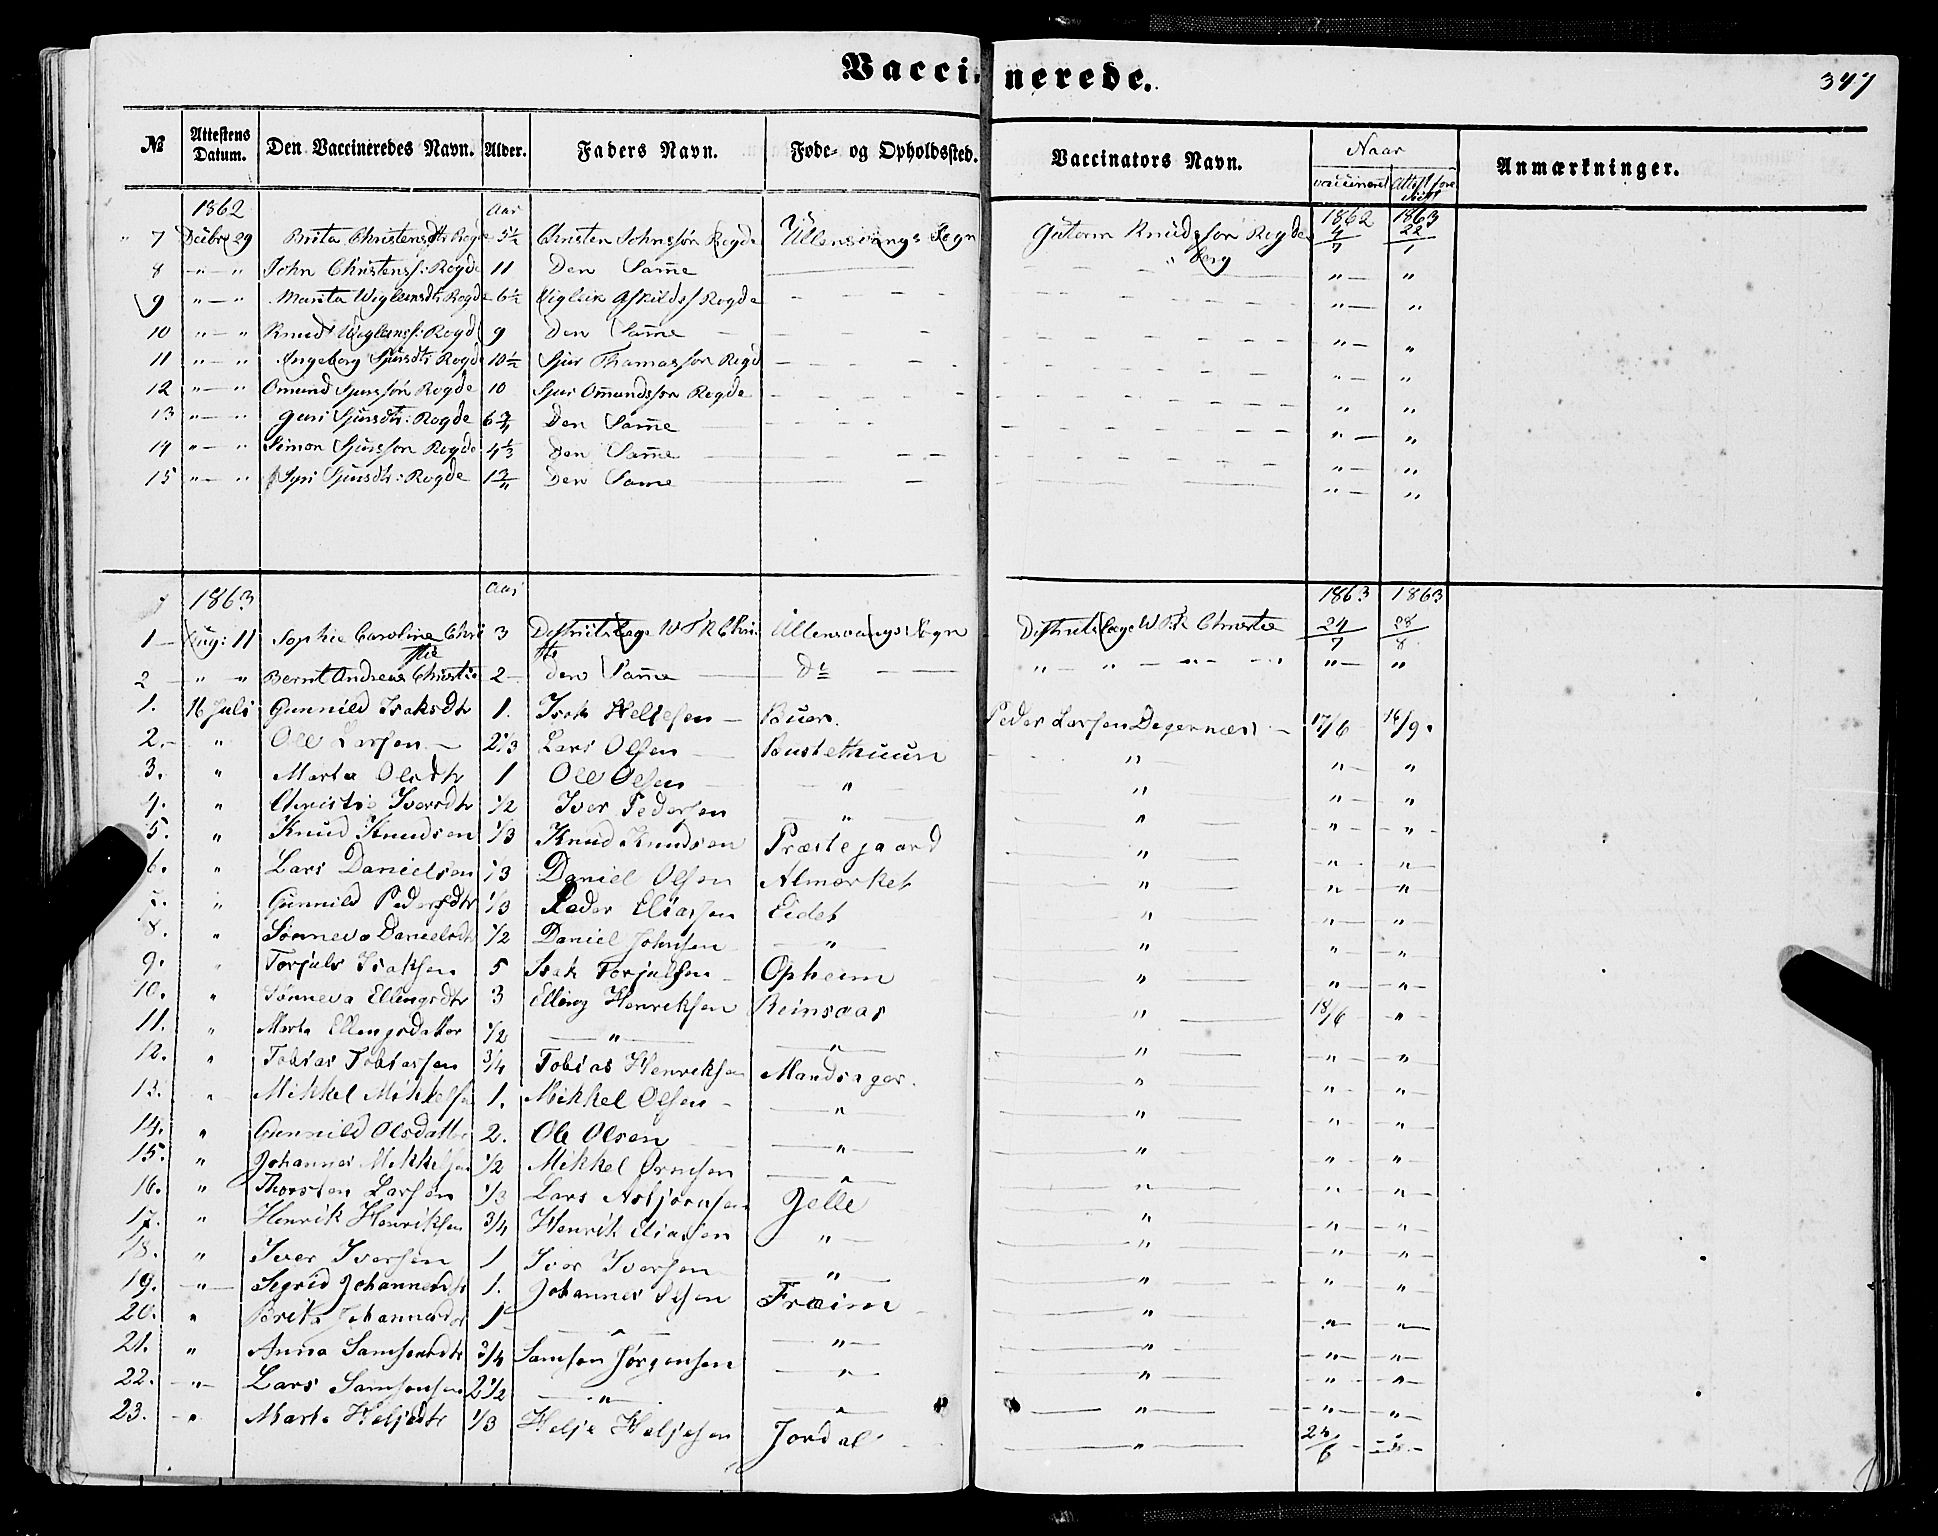 Vaccinerede. 347
№ Attestens Datum. Den Vaccineredes Navn. Alder. Faders Navn. Føde- og Opholdssted. Vaccinators Navn. Naar vaccineret Attest Anmærkninger.
1862 Aar 1862 1863
7 Decbr 29 Brita Christensdtr Rogde 5½ Christen Johnssøn Rogde Ullensvangs Sogn Gutorm Knudssøn Rogde 4/7 22/1
8 " — " John Christenss: Rogde 11 Den Samme " — "
9 " — " Marita Wiglensdtr Rogde 6½ Wigleik Askildss Rogde " — "
10 " — " Knud Wiglenss: Rogde 9 Den Samme " — "
11 " — " Ingeborg Sjursdtr Rogde 10½ Sjur Thomassøn Rogde " — "
12 " — " Omund Sjurssøn Rogde 10 Sjur Omundssøn Rogde " — "
13 " — " Guri Sjursdtr: Rogde 6¾ Den Samme " — "
14 " — " Simon Sjurssøn Rogde 4⅓ Den Samme " — "
15 " — " Syri Sjursdtr: Rogde Den Samme " — "
1863 Aar 1863 1863
1 Aug: 11 Sophie Caroline Christie 3 Distritslæge W F K Christie Ullensvangs Sogn Distritslæge W F K Christie 24/7 28/8
2 " " Bernt Andreas Christie 2 den Samme do " — " " — "
1. 16 Juli Gunnild Isaksdtr 1. Isak Heljesen Buer. Peder Larsen Degernæs 17/6 16/9.
2. " Ole Larsen 2⅓ Lars Olsen Bustethuun " " — "
3. " Marta Olsdtr 1 Ole Olsen " " " — "
4. " Christie Iversdtr 1/2 Iver Pedersen " " " — "
5. " Knud Knudsen 1/3 Knud Knudsen Præstegaard " " — "
6. " Lars Danielsen 1/3 Daniel Olsen Almerket " " "
7. " Gunnild Pedersdtr 1/3 Peder Eliassen Eidet " " "
8. " Sønneva Danielsdtr 1/2 Daniel Johnsen " " " "
9. " Torjuls Isaksen 5 Isak Torjulsen Opheim " " "
10. " Sønneva Ellingsdtr 3 Elling Henriksen Reinsaas " 18/6 "
11. " Marta Ellingsdatter 1/2 " " " " "
12. " Tobias Tobiassen 3/4 Tobias Henriksen Mandsager. " " "
13. " Mikkel Mikkelsen 1. Mikkel Olsen " " " "
14. " Gunnild Olsdatter 2. Ole Olsen " " " "
15. " Johannes Mikkelsen 1/2 Mikkel Ormsen " " " "
16. " Thorsten Larsen 1/3 Lars Asbjørnsen Jelle " " "
17. " Henrik Henriksen 3/4 Henrik Eliassen " " " "
18. " Iver Iversen 1 Iver Iversen " " " "
19. " Sigrid Johannesdtr 1. Johannes Fræim " " "
20. " Brita Johannesdtr 1 " " " " "
21. " Anna Samsonsdtr 3/4 Samson Jørgensen " " " "
22. " Lars Samsonsen 2 1/2 " " " " "
23. " Marta Heljesdtr 1/3 Helje Heljesen Jordal " 24/6